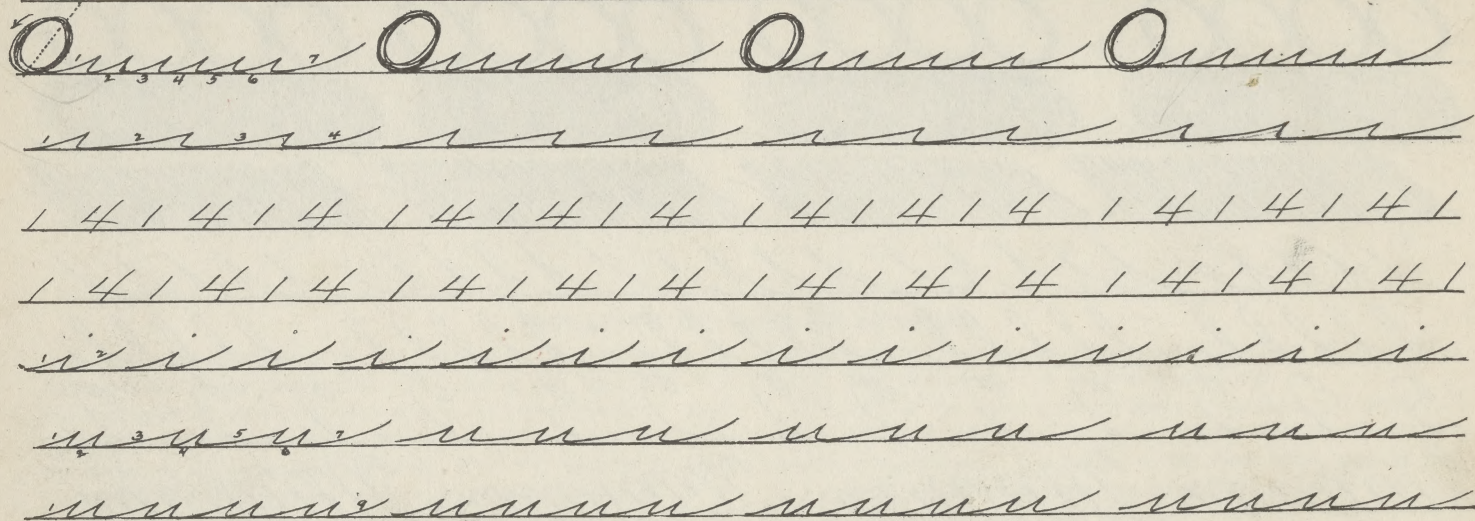 O 1 7 O O O
2 3 4 5 6
1 2 3 4
1 4 1 4 1 4 1 4 1 4 1 4 1 4 1 4 1 4 1 4 1 4 1 4 1
1 4 1 4 1 4 1 4 1 4 1 4 1 4 1 4 1 4 1 4 1 4 1 4 1
1 i 2 i i i i i i i i i i i i i
1 u 3 u 5 u 7 u u u u u u u u u
2 4 6
1 u u u u 9 u u u u u u u u u u u u